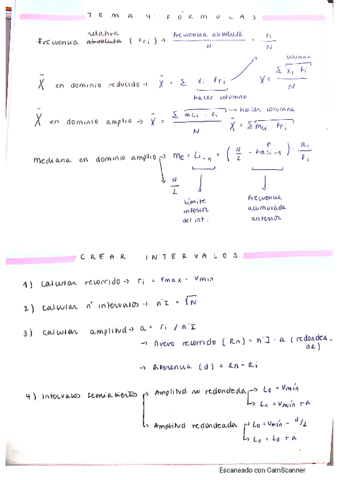 TEMA 4: FÓRMULAS
relative
Frecuencia absoluta (fri) → Frecuencia absolute / N = fi / N
columna
X̄ en dominio reducido → X̄ = Σ xi fri X̄ = Σ xi fi / N
hacer columna
X̄ en dominio amplio → X̄ = Σ mci · fi / N → hacer columna X̄ = Σ mci fri
mediana en dominio amplio → me = Li-1 + ( N/2 - fai-1 ) · ai / fi
N/2
Límite Frecuencia
inferior acumulada
del int. anterior
CREAR INTERVALOS
1) calcular recorrido → ri = vmax - vmin
2) calcular nº intervalos → nºI = √N
3) calcular amplitud → a = ri / nºI
→ Nuevo recorrido (Rn) = nºI · a (redondea
da)
→ Diferencia (d) = Rn - Ri
4) Intervalos semiabiertos → Amplitud no redondeada → L0 = vmin
→ L1 = vmin + a
→ Amplitud redondeada → L0 = vmin - d/2
→ L1 = L0 + a
Escaneado con CamScanner